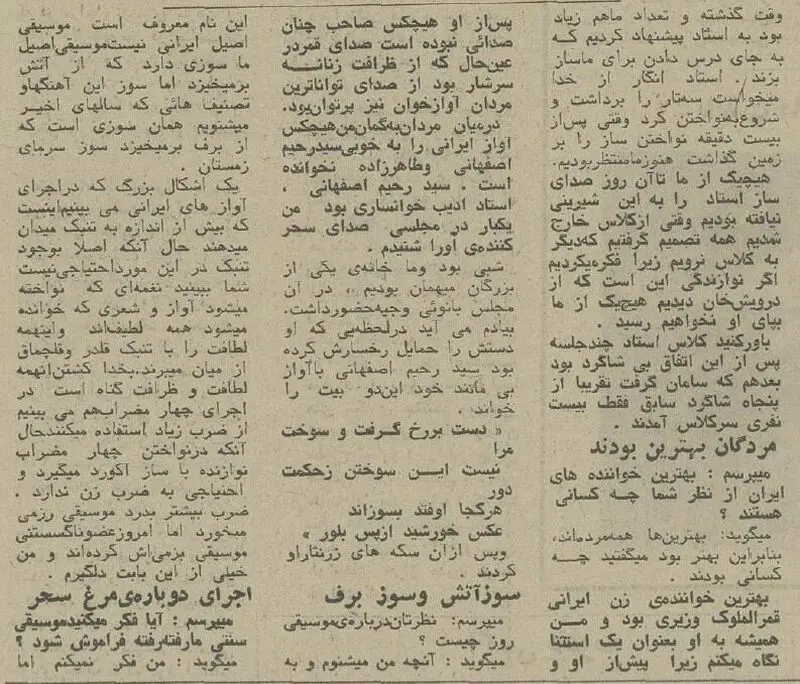 وقت گذشته و تعداد ماهم زیاد
بود به استاد پیشنهاد کردیم که
به جای درس دادن برای ماساز
بزند. استاد انگار از خدا
میخواست سه‌تار را برداشت و
شروع‌به‌نواختن کرد وقتی پس‌از
بیست دقیقه نواختن ساز را بر
زمین گذاشت هنوزمامنتظربودیم.
هیچیک از ما تاآن روز صدای
ساز استاد را به این شیرینی
نیافته بودیم وقتی ازکلاس خارج
شدیم همه تصمیم گرفتیم که‌دیگر
به کلاس نرویم زیرا فکرمیکردیم
اگر نوازندگی این است که از
درویش‌خان دیدیم هیچ‌یک از ما
بپای او نخواهیم رسید .
باورکنید کلاس استاد چندجلسه
پس از این اتفاق بی شاگرد بود
بعدهم که سامان گرفت تقریبا از
پنجاه شاگرد سابق فقط بیست
نفری سرکلاس آمدند .
مردگان بهترین بودند
میپرسم : بهترین خواننده های
ایران از نظر شما چه کسانی
هستند ؟
میگوید: بهترین‌ها همه‌مرده‌اند،
بنابراین بهتر بود میگفتید چه
کسانی بودند .
بهترین خواننده‌ی زن ایرانی
قمرالملوک وزیری بود و من
همیشه به او بعنوان یک استثنا
نگاه میکنم زیرا پیش‌از او و
پس‌از او هیچکس صاحب چنان
صدائی نبوده است صدای قمردر
عین‌حال که از ظرافت زنانه
سرشار بود از صدای تواناترین
مردان آوازخوان نیز پرتوان‌بود.
درمیان مردان‌به‌گمان‌من‌هیچکس
آواز ایرانی را به خوبی‌سیدرحیم
اصفهانی وطاهرزاده نخوانده
است . سید رحیم اصفهانی ،
استاد ادیب خوانساری بود من
یکبار در مجلسی صدای سحر
کننده‌ی اورا شنیدم .
شبی بود وما خانه‌ی یکی از
بزرگان میهمان بودیم ، در آن
مجلس بانوئی وجیه‌حضورداشت.
بیادم می آید درلحظه‌یی که او
دستش را حمایل رخسارش کرده
بود سید رحیم اصفهانی باآواز
بی مانند خود این‌دو بیت را
خواند .
« دست بررخ گرفت و سوخت
مرا
نیست این سوختن زحکمت
دور
هرکجا اوفتد بسوزاند
عکس خورشید ازپس بلور »
وپس ازآن سکه های زرنثاراو
کردند .
سوزآتش وسوز برف
میپرسم: نظرتان‌درباره‌ی‌موسیقی
روز چیست ؟
میگوید : آنچه من میشنوم و به
این نام معروف است موسیقی
اصیل ایرانی نیست‌موسیقی‌اصیل
ما سوزی دارد که از آتش
برمیخیزد اما سوز این آهنگهاو
تصنیف هائی که سالهای اخیر
میشنویم همان سوزی است که
از برف برمیخیزد سوز سرمای
زمستان .
یک اشکال بزرگ که دراجرای
آواز های ایرانی می بینیم‌اینست
که بیش از اندازه به تنبک میدان
میدهند حال آنکه اصلا بوجود
تنبک در این مورداحتیاجی‌نیست
شما ببینید نغمه‌ای که نواخته
میشود آواز و شعری که خوانده
میشود همه لطیف‌اند واینهمه
لطافت را با تنبک قلدر وقلچماق
از میان میبرند.بخدا کشتن‌اینهمه
لطافت و ظرافت گناه است در
اجرای چهار مضراب‌هم می بینیم
از ضرب زیاد استفاده میکنندحال
آنکه درنواختن چهار مضراب
نوازنده با ساز آکورد میگیرد و
احتیاجی به ضرب زن ندارد .
ضرب بیشتر بدرد موسیقی رزمی
میخورد اما امروزعضوناگسستنی
موسیقی بزمی‌اش کرده‌اند و من
خیلی از این بابت دلگیرم .
اجرای دوباره‌ی‌مرغ سحر
میپرسم : آیا فکر میکنیدموسیقی
سنتی مارفته‌رفته فراموش شود ؟
میگوید : من فکر نمیکنم اما